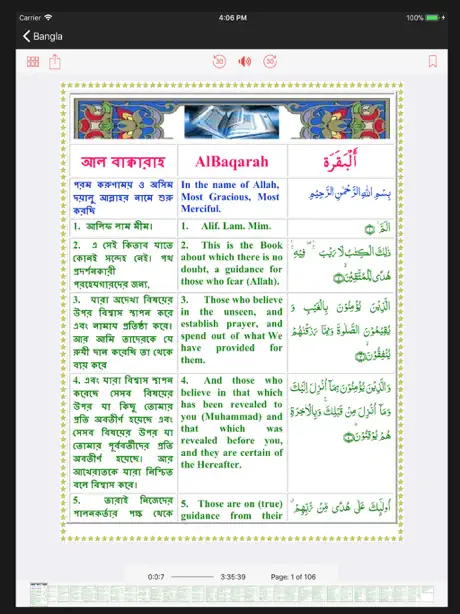 Carrier 4:06 PM 100%
Bangla
30 30
আল বাক্বারাহ AlBaqarah أَلْبَقَرَة
পরম করুণাময় ও অসিম
দয়ালু আল্লাহর নামে শুরু
করছি
In the name of Allah,
Most Gracious, Most
Merciful.
بِسْمِ اللهِ الرَّحْمٰنِ الرَّحِيْمِ
1. আলিফ লাম মীম।
1. Alif. Lam. Mim.
الٓمّٓ
2. এ সেই কিতাব যাতে
কোনই সন্দেহ নেই। পথ
প্রদর্শনকারী
পরহেযগারদের জন্য,
2. This is the Book
about which there is no
doubt, a guidance for
those who fear (Allah).
ذٰلِكَ الْكِتٰبُ لَا رَيْبَ فِيْهِ
هُدًى لِّلْمُتَّقِيْنَ
3. যারা অদেখা বিষয়ের
উপর বিশ্বাস স্থাপন করে
এবং নামায প্রতিষ্ঠা করে।
আর আমি তাদেরকে যে
রুযী দান করেছি তা থেকে
ব্যয় করে
3. Those who believe
in the unseen, and
establish prayer, and
spend out of what We
have provided for
them.
الَّذِيْنَ يُؤْمِنُوْنَ بِالْغَيْبِ وَ
يُقِيْمُوْنَ الصَّلٰوةَ وَمِمَّا رَزَقْنٰهُمْ
يُنْفِقُوْنَ
4. এবং যারা বিশ্বাস স্থাপন
করেছে সেসব বিষয়ের
উপর যা কিছু তোমার
প্রতি অবতীর্ণ হয়েছে এবং
সেসব বিষয়ের উপর যা
তোমার পূর্ববর্তীদের প্রতি
অবতীর্ণ হয়েছে। আর
আখেরাতকে যারা নিশ্চিত
বলে বিশ্বাস করে।
4. And those who
believe in that which
has been revealed to
you (Muhammad) and
that which was
revealed before you,
and they are certain of
the Hereafter.
وَالَّذِيْنَ يُؤْمِنُوْنَ بِمَآ اُنْزِلَ اِلَيْكَ
وَمَآ اُنْزِلَ مِنْ قَبْلِكَ وَبِالْاٰخِرَةِ
هُمْ يُوْقِنُوْنَ
5. তারাই নিজেদের
পালনকর্তার পক্ষ থেকে
5. Those are on (true)
guidance from their
اُولٰٓئِكَ عَلٰى هُدًى مِّنْ رَّبِّهِمْ
0:0:7 3:35:39 Page: 1 of 106